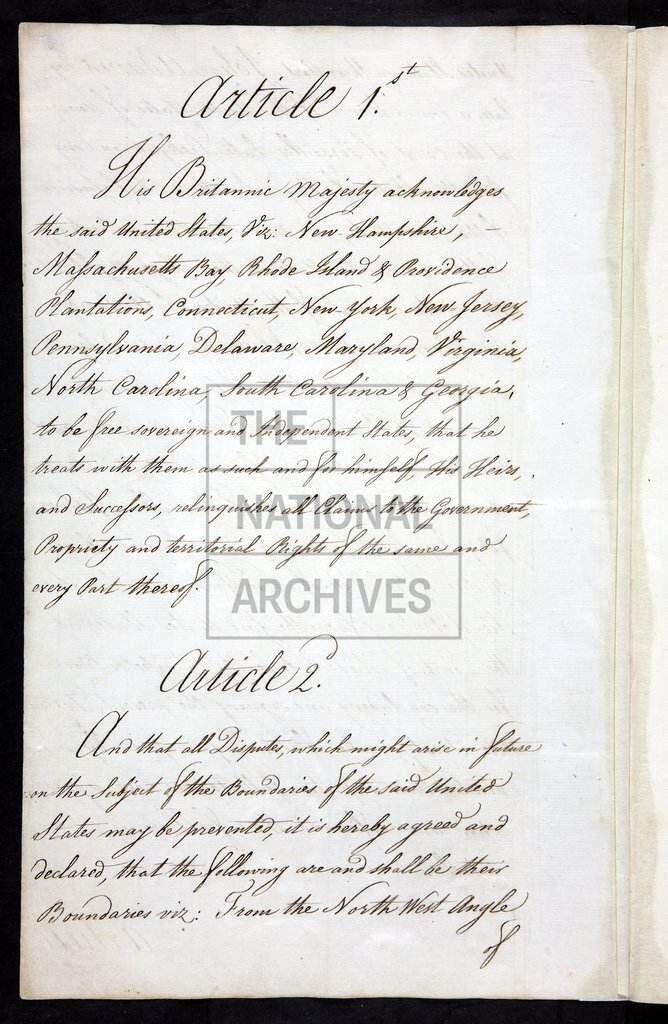 Article 1.st
His Britannic Majesty acknowledges
the said United States, Viz: New-Hampshire, –
Massachusetts Bay, Rhode Island & Providence
Plantations, Connecticut, New-York, New-Jersey,
Pennsylvania, Delaware, Maryland, Virginia,
North Carolina, South Carolina & Georgia,
to be free sovereign and Independent States, that he
treats with them as such and for himself, His Heirs,
and Successors, relinquishes all Claims to the Government,
Propriety and territorial Rights of the same and
every Part thereof.
THE
NATIONAL
ARCHIVES
Article 2.d
And that all Disputes, which might arise in future
on the Subject of the Boundaries of the said United
States may be prevented, it is hereby agreed and
declared, that the following are and shall be their
Boundaries viz: From the North West Angle
of